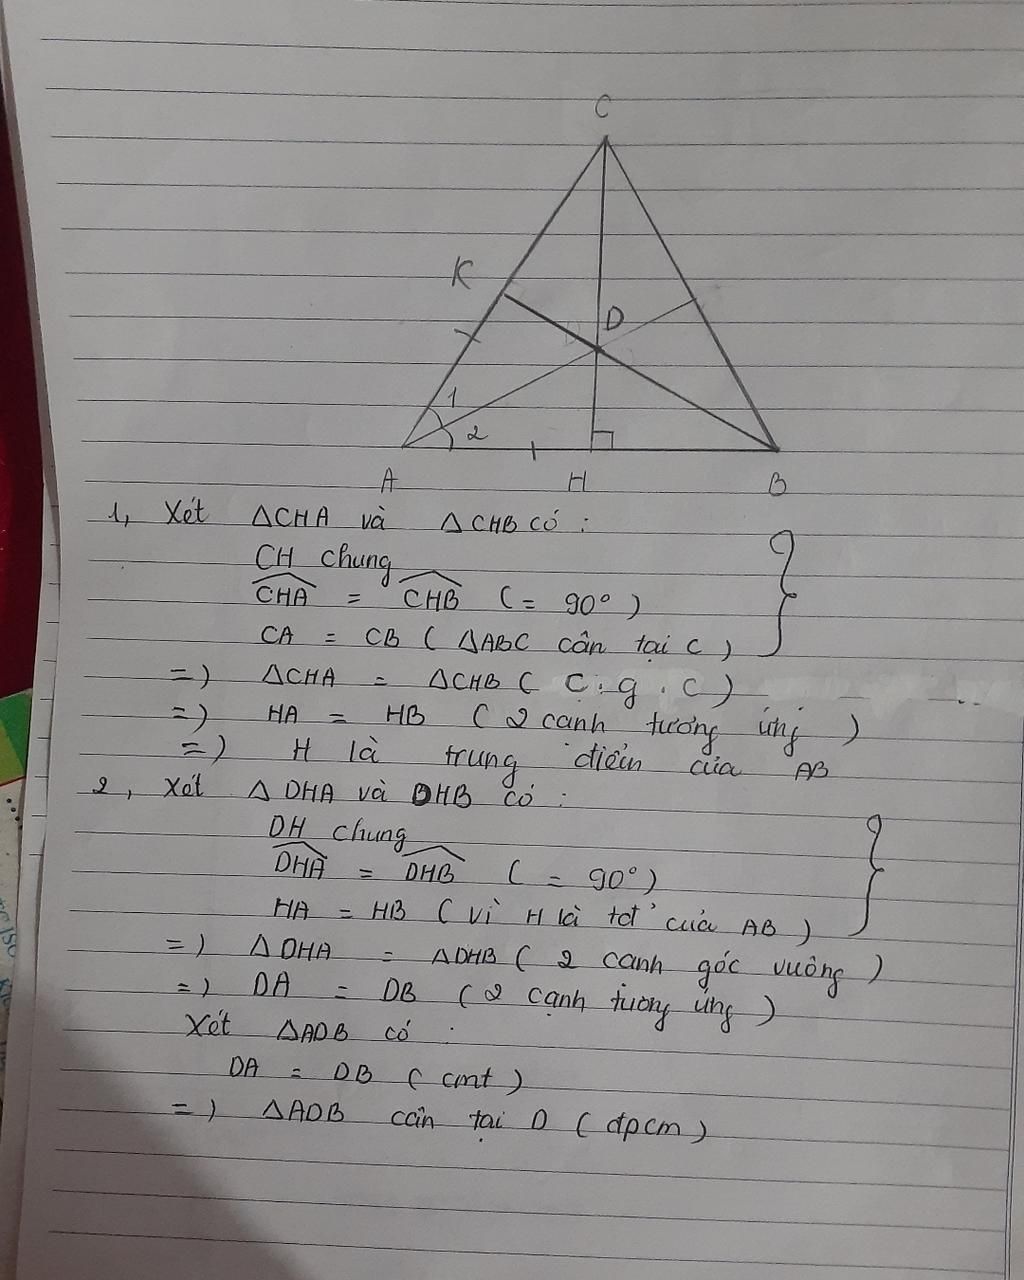 C
K
D
1
2
A H B
1, Xét ΔCHA và ΔCHB có :
CH chung
CHA = CHB ( = 90° )
CA = CB ( ΔABC cân tại C )
=) ΔCHA = ΔCHB ( C . g . C )
=) HA = HB ( 2 cạnh tương ứng )
=) H là trung điểm của AB
2, Xét Δ DHA và DHB có :
DH chung
DHA = DHB ( = 90° )
HA = HB ( vì H là tđ của AB )
=) Δ DHA = ΔDHB ( 2 cạnh góc vuông )
=) DA = DB ( 2 cạnh tương ứng )
Xét ΔADB có :
DA = DB ( cmt )
=) ΔADB cân tại D ( đpcm )